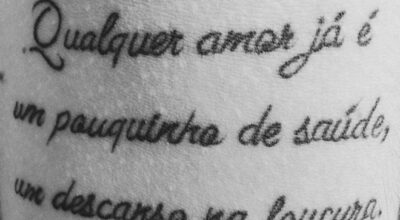 Qualquer amor já é
um pouquinho de saúde,
um descanso na loucura.